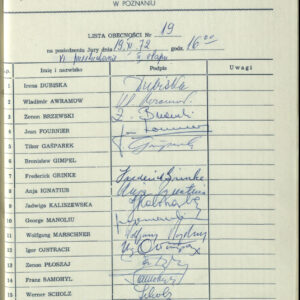 W POZNANIU
LISTA OBECNOŚCI Nr 19
na posiedzeniu Jury dnia 19.XI.72 godz. 16 00
VI przesłuchanie II etapu
L.p. Imię i nazwisko Podpis Uwagi
1 2 3 4
1 Irena DUBISKA Dubiska
2 Wladimir AWRAMOW
3 Zenon BRZEWSKI Z. Brzewski
4 Jean FOURNIER Jean Fournier
5 Tibor GAŠPAREK Gašparek
6 Bronisław GIMPEL
7 Frederick GRINKE Frederick Grinke
8 Anja IGNATIUS Anja Ignatius
9 Jadwiga KALISZEWSKA JKaliszewska
10 George MANOLIU Manoliu
11 Wolfgang MARSCHNER
12 Igor OJSTRACH
13 Zenon PŁOSZAJ
14 Franz SAMOHYL Samohyl
15 Werner SCHOLZ Scholz